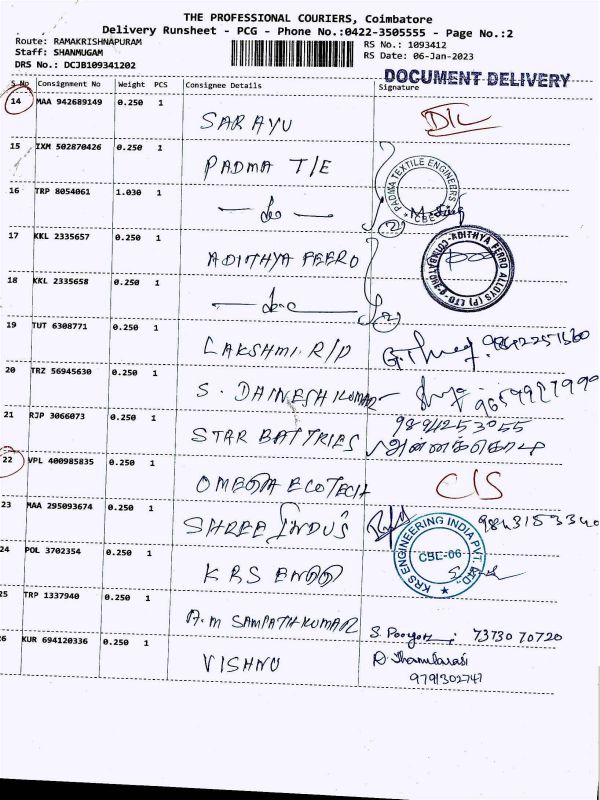 THE PROFESSIONAL COURIERS, Coimbatore
Delivery Runsheet - PCG - Phone No.:0422-3505555 - Page No.:2
Route: RAMAKRISHNAPURAM
Staff: SHANMUGAM
DRS No.: DCJB109341202
RS No.: 1093412
RS Date: 06-Jan-2023
DOCUMENT DELIVERY
S No Consignment No Weight PCS Consignee Details Signature
14 MAA 942689149 0.250 1
SARAYU DIL
15 IXM 502870426 0.250 1
PADMA T/E
PADMA TEXTILE ENGINEERS CBE
16 TRP 8054061 1.030 1
— do —
(2)
17 KKL 2335657 0.250 1
ADITHYA FERRO
ADITHYA FERRO ALLOYS (P) LTD
18 KKL 2335658 0.250 1
— do —
(2)
19 TUT 6308771 0.250 1
LAKSHMI. R/D
20 TRZ 56945630 0.250 1
S. DAINESH KUMAR
21 RJP 3066073 0.250 1
9894253055
STAR BATTRIES அன்னக்கொடி
22 VPL 400985835 0.250 1
OMEGA ECOTECH C/S
23 MAA 295093674 0.250 1
SHREE INDUS 9843153340
KRS ENGINEERING INDIA PVT. LTD. CBE-06
24 POL 3702354 0.250 1
KRS ENGG
25 TRP 1337940 0.250 1
A.M SAMPATH KUMAR 73730 70720
26 KUR 694120336 0.250 1
VISHNU
9791302747